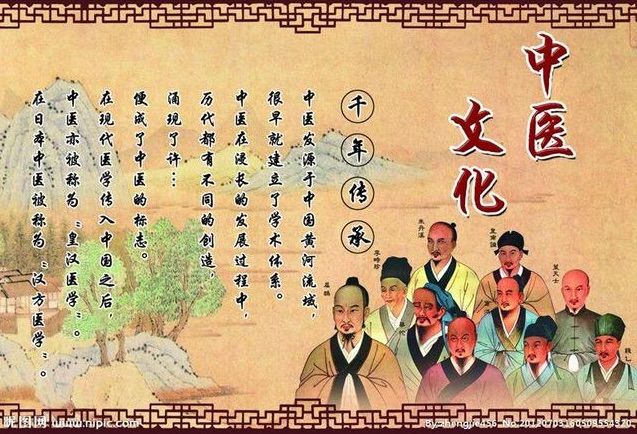 中医
文化
千年传承
中医发源于中国黄河流域,
很早就建立了学术体系。
中医在漫长的发展过程中,
历代都有不同的创造,
涌现了许…
便成了中医的标志。
在现代医学传入中国之后,
中医亦被称为“皇汉医学”。
在日本中医被称为“汉方医学”。
朱丹溪
皇甫谧
李时珍
叶天士
扁鹊
华佗
钱乙
昵图网 www.nipic.com
By:zhangjie456 No:20120703160509554320